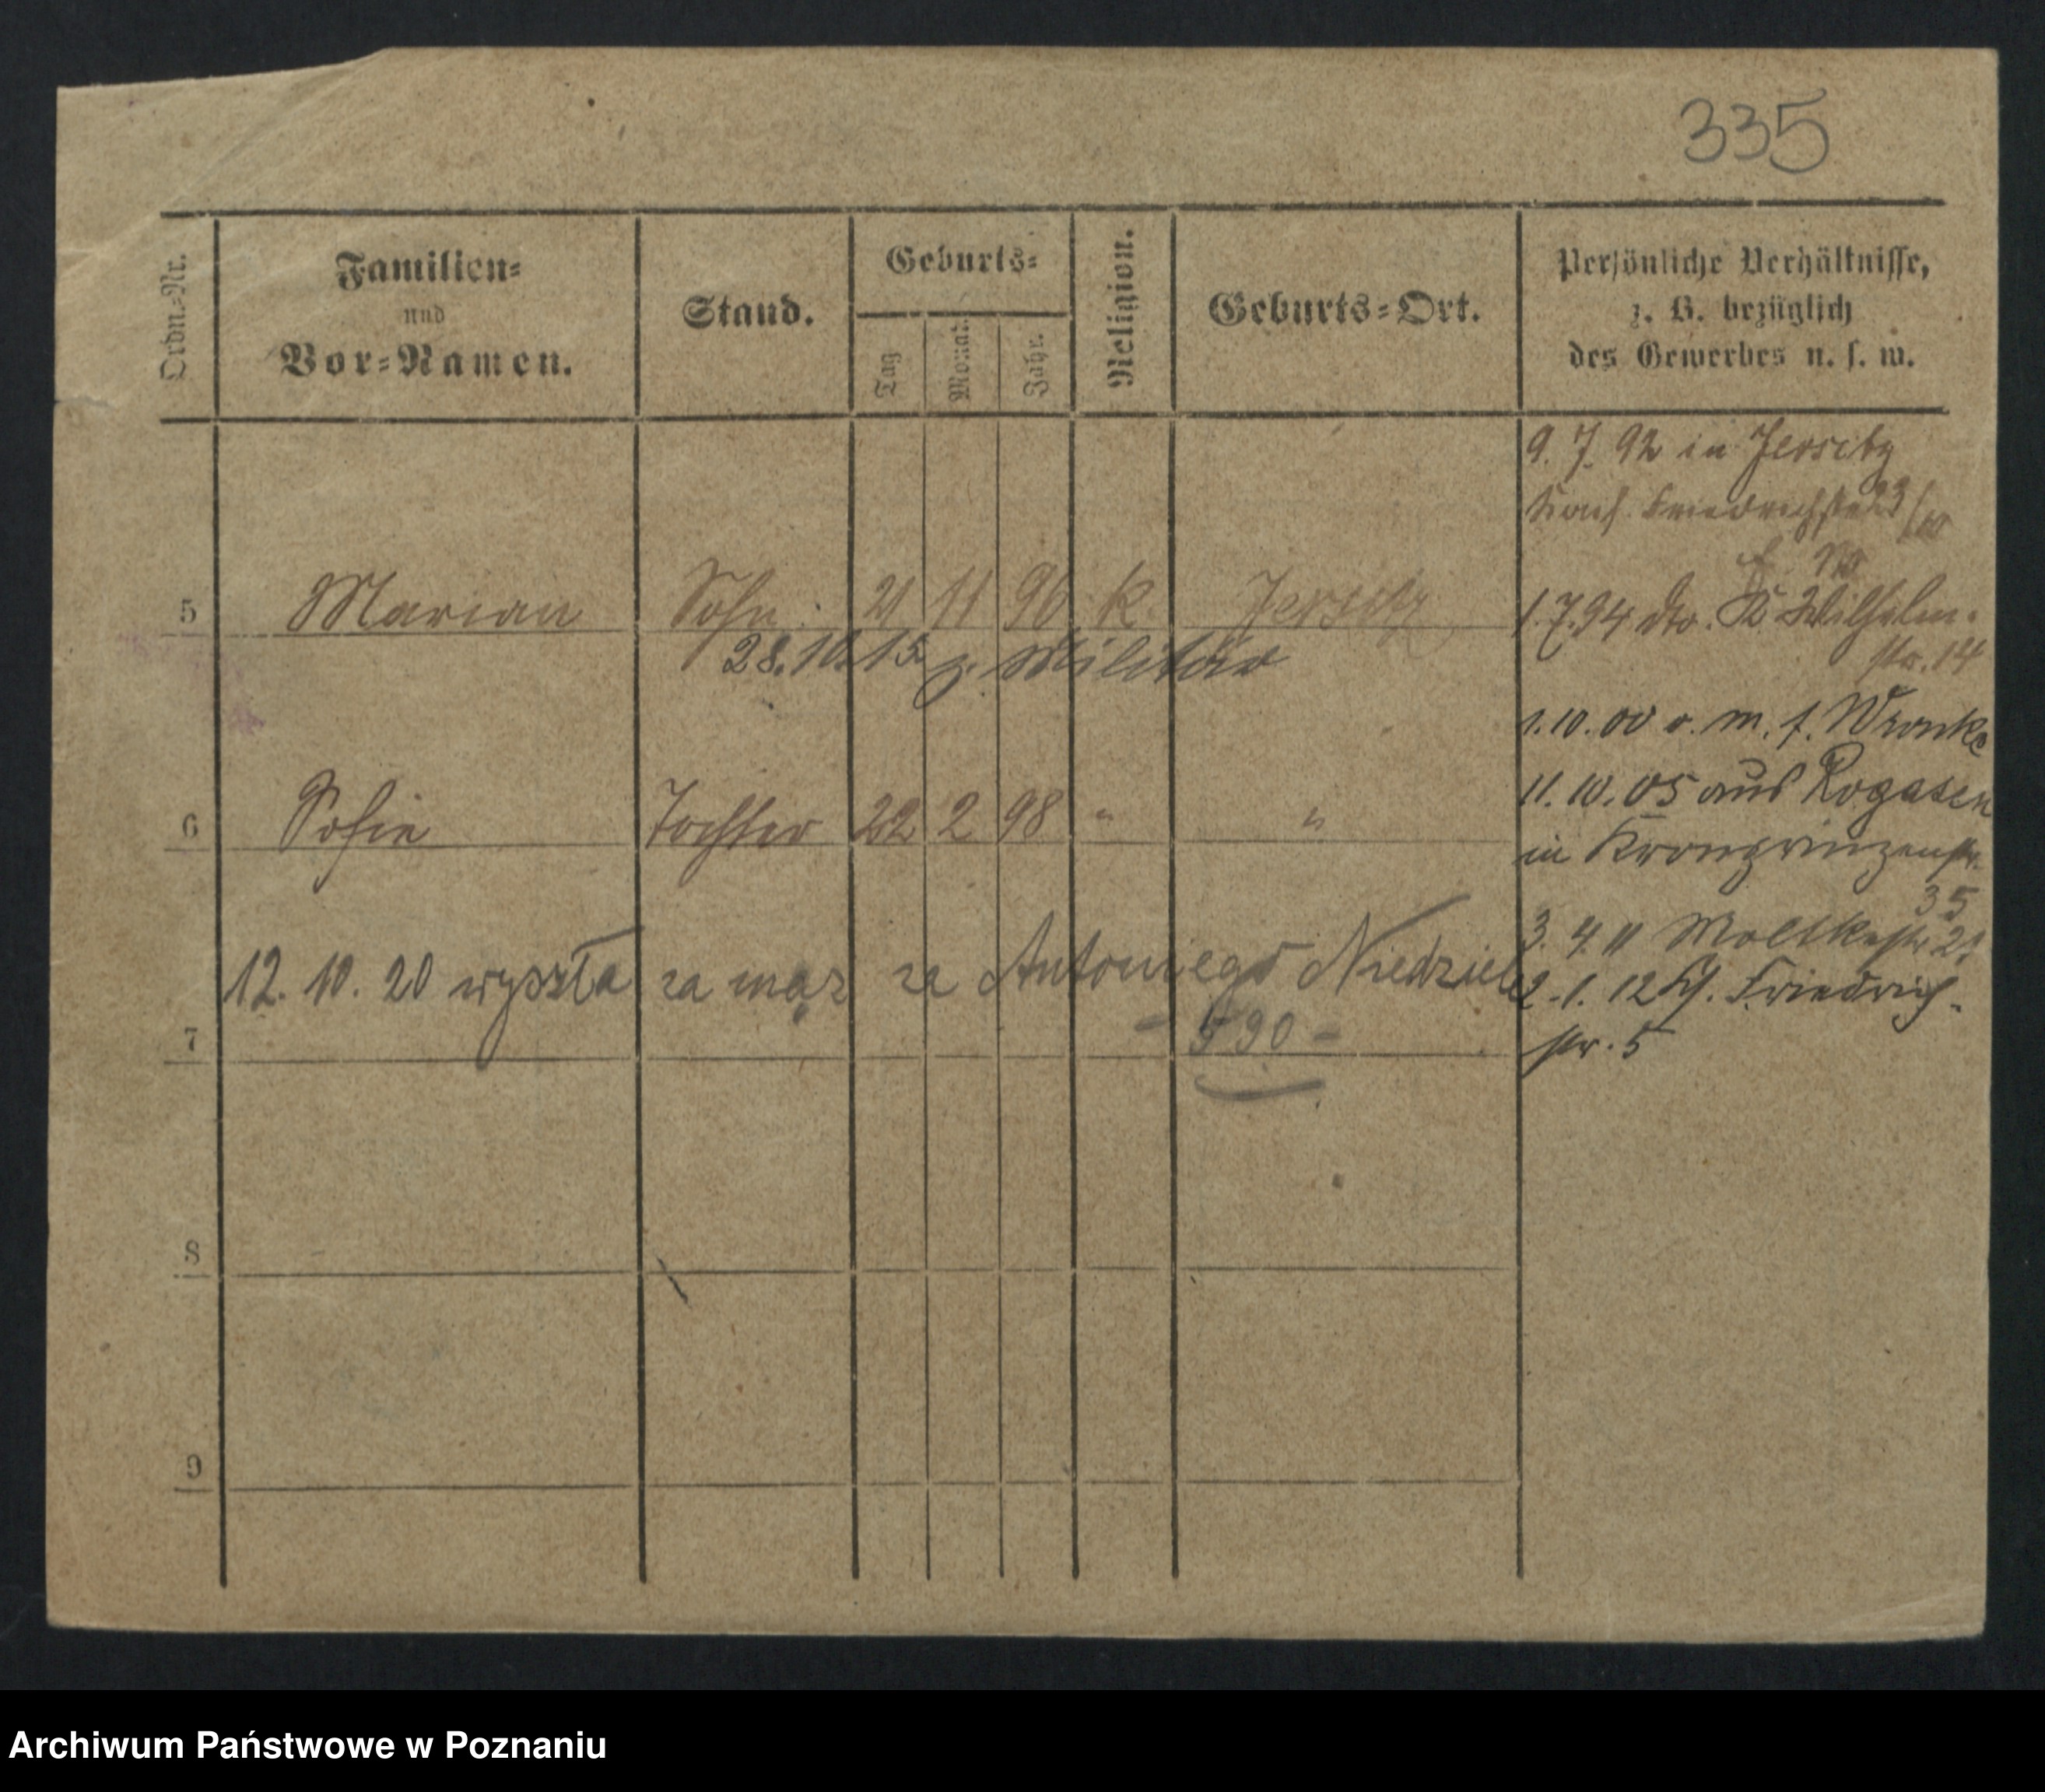 335
Ordn.-Nr.
Familien-
und
Vor-Namen.
Stand.
Geburts-
Tag
Monat.
Jahr.
Religion.
Geburts-Ort.
Persönliche Verhältnisse,
z. B. bezüglich
des Gewerbes u. s. w.
9. 7. 92 in Jersitz
Friedrichstr 23
5 Marian Sohn 21 11 96 k. Jersitz
1. 7. 94 dto. Wilhelm-
str. 14
28. 10. 15 z. Militär
1. 10. 00 v. m. f. Wronke
6 Sofie Tochter 22 2 98 " "
11. 10. 05 aus Rogasen
in Kronprinzenstr.
35
3. 4. 11 Moltkestr 21
12. 10. 20 wyszła za mąż za Antoniego Niedziele
2. 1. 12 Friedrich-
str. 5
- 590 -
7
8
9
Archiwum Państwowe w Poznaniu